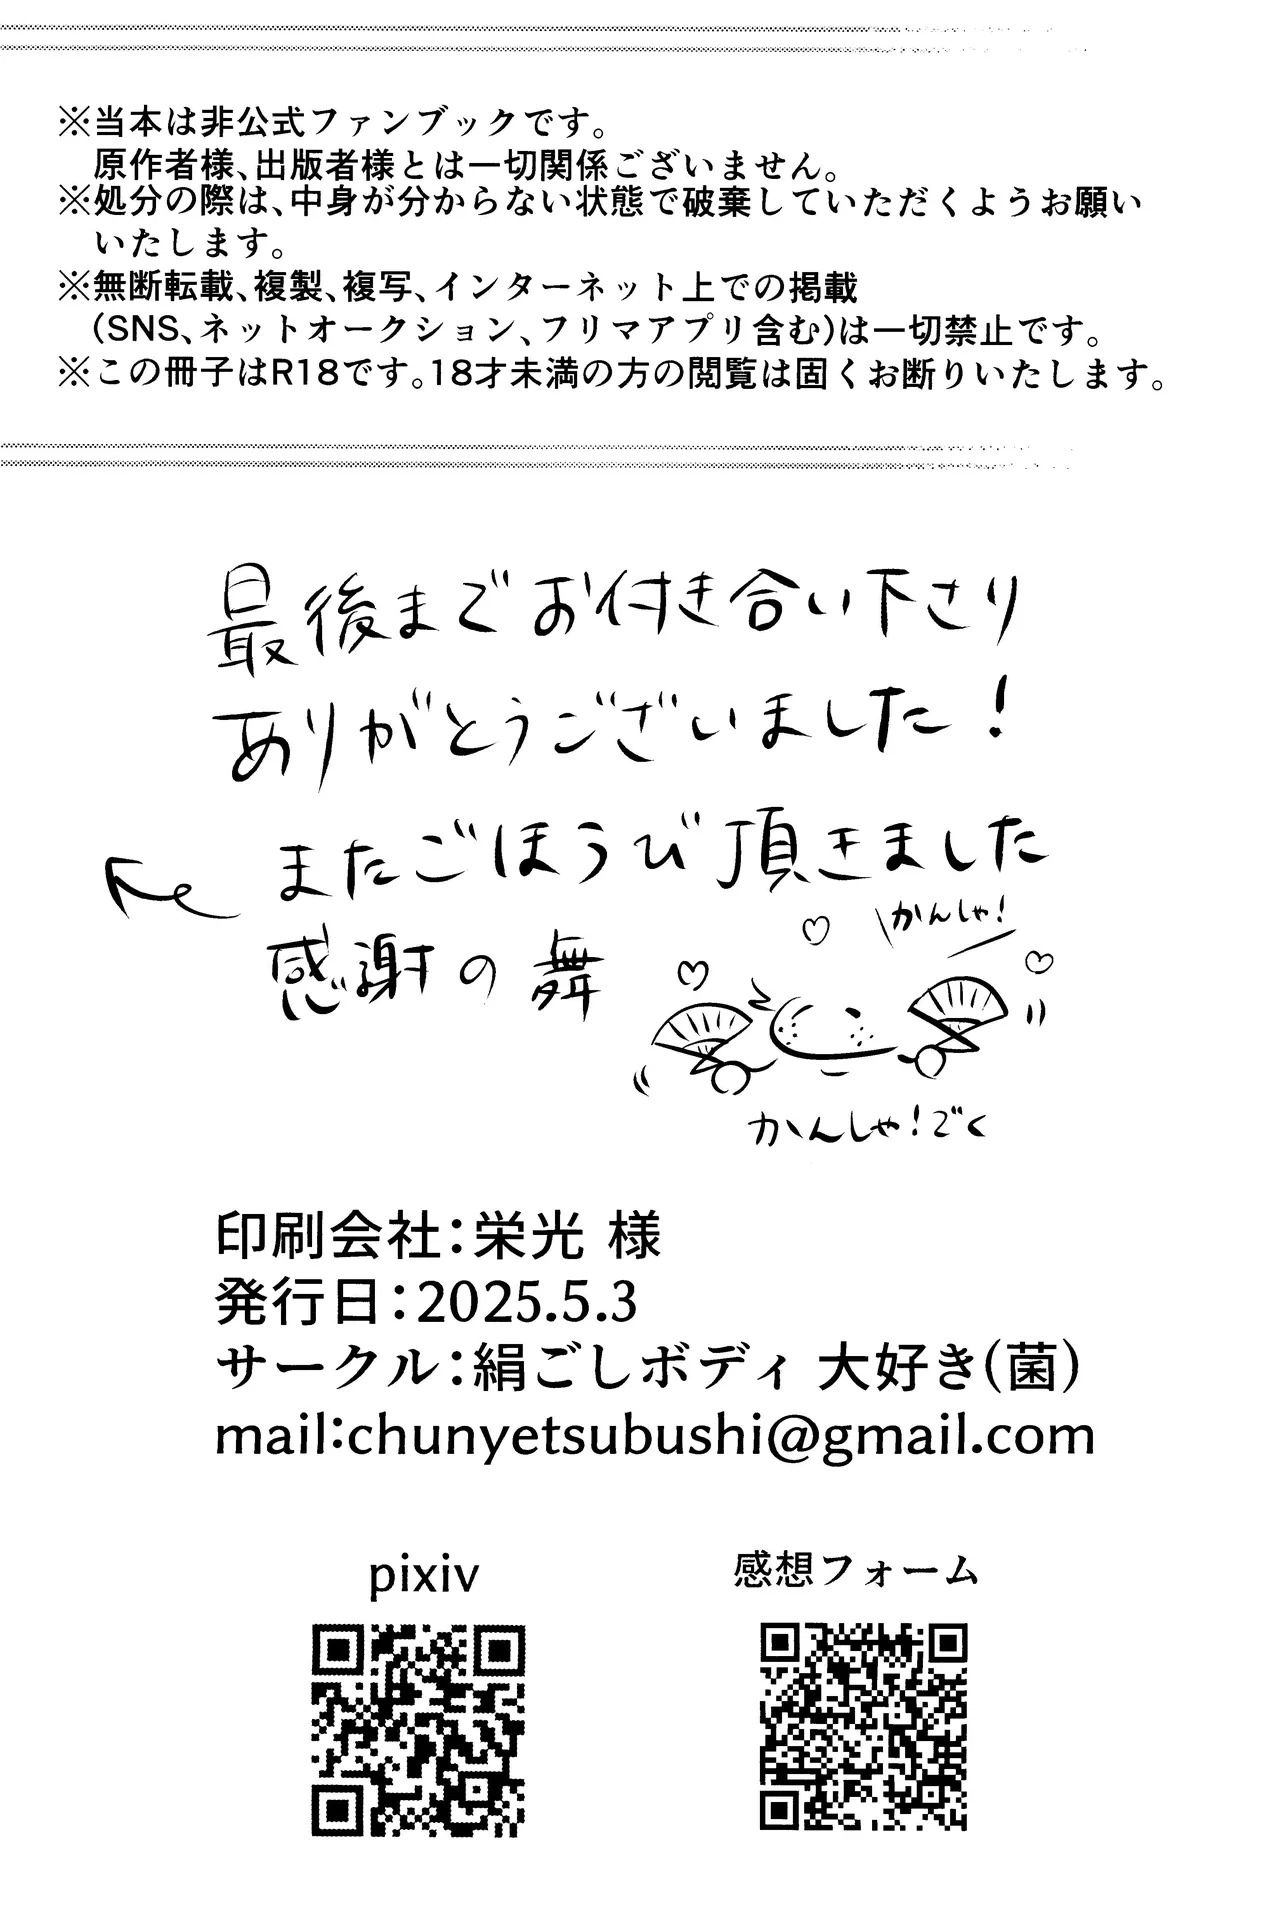 ※当本は非公式ファンブックです。
原作者様、出版者様とは一切関係ございません。
※処分の際は、中身が分からない状態で破棄していただくようお願い
いたします。
※無断転載、複製、複写、インターネット上での掲載
(SNS、ネットオークション、フリマアプリ含む)は一切禁止です。
※この冊子はR18です。18才未満の方の閲覧は固くお断りいたします。
最後までお付き合い下さり
ありがとうございました!
またごほうび頂きました
感謝の舞
かんしゃ!
かんしゃ!ごく
印刷会社:栄光 様
発行日:2025.5.3
サークル:絹ごしボディ 大好き(菌)
mail:chunyetsubushi@gmail.com
pixiv
感想フォーム